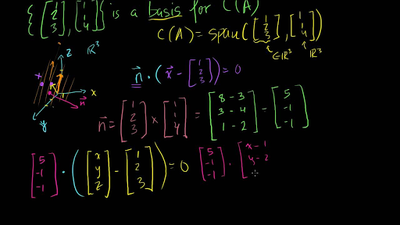 {[1 2 3], [1 1 4]} is a basis for C(A)
C(A) = span([1 2 3], [1 1 4])
∈ℝ³ ℝ³
z ℝ³
x
y
n
n · (x - [1 2 3]) = 0
n = [1 2 3] × [1 1 4] = [8 - 3 3 - 4 1 - 2] = [5 -1 -1]
[5 -1 -1] · ([x y z] - [1 2 3]) = 0 [5 -1 -1] · [x - 1 y - 2